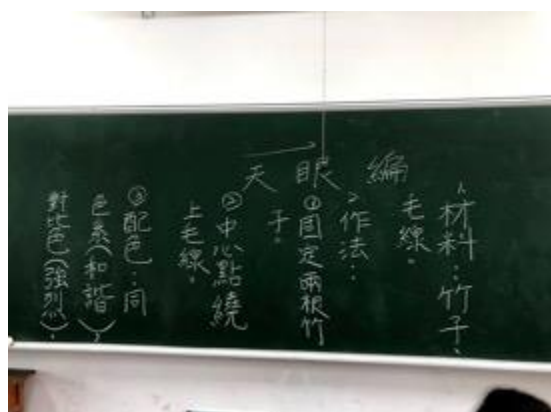 天眼編
1材料：竹子、
毛線。
2作法：
①固定兩根竹
子。
②中心點繞
上毛線。
③配色：同
色系(和諧)，
對比色(強烈)。